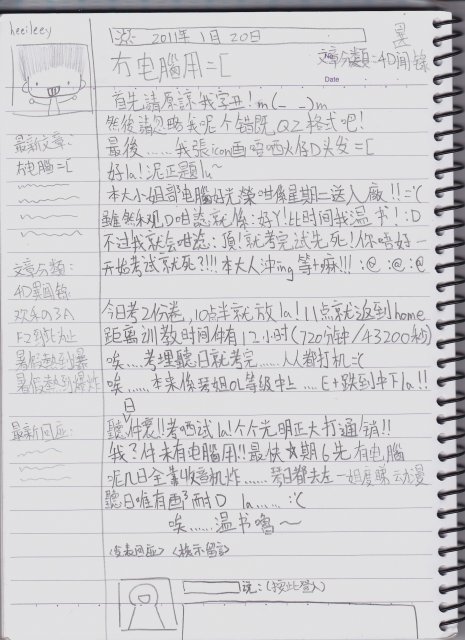 heeileey
2011年 1月 20日
冇电腦用=[
文章分類:4D閒錄
Date
首先請原諒我字丑!m(_ _)m
然後請忽略我呢个错既QZ格式吧!
最後……我張icon画唔晒火仔D头发=[
好la!泥正題la~
最新文章:
冇电腦=[
本大小姐部电腦好光榮咁係星期二送入廠!!=’(
雖然乐观D咁諗就係:好Y!比时间我温书!:D
不过我就会咁諗:頂!就考完試先死!你唔好一
开始考試就死?!!!本大人冲ing等+麻!!! :@ :@ :@
文章分類:
4D異閒錄
欢乐の3A
F2到此为止
暑假熱到爆
暑假熱到爆炸
今日考2份卷,10点半就放la!11点就返到home
距离训教时间仲有12小时(720分钟/43200秒)
唉……考埋聽日就考完……人人都打机:(
唉……本来係琴姐OL等级中上……E+跌到中下la!!
日
最新回应:
聽仲衰!!考晒試la!个个光明正大打通销!!
我?仲未有电腦用!!最快☆期6先有电腦
呢几日全靠收音机炸……琴日都去左一姐度睇动漫
聽日唯有画3耐D la……:’(
唉……温书嚕~
<发表回应> <検示留言>
说:(按此登入)